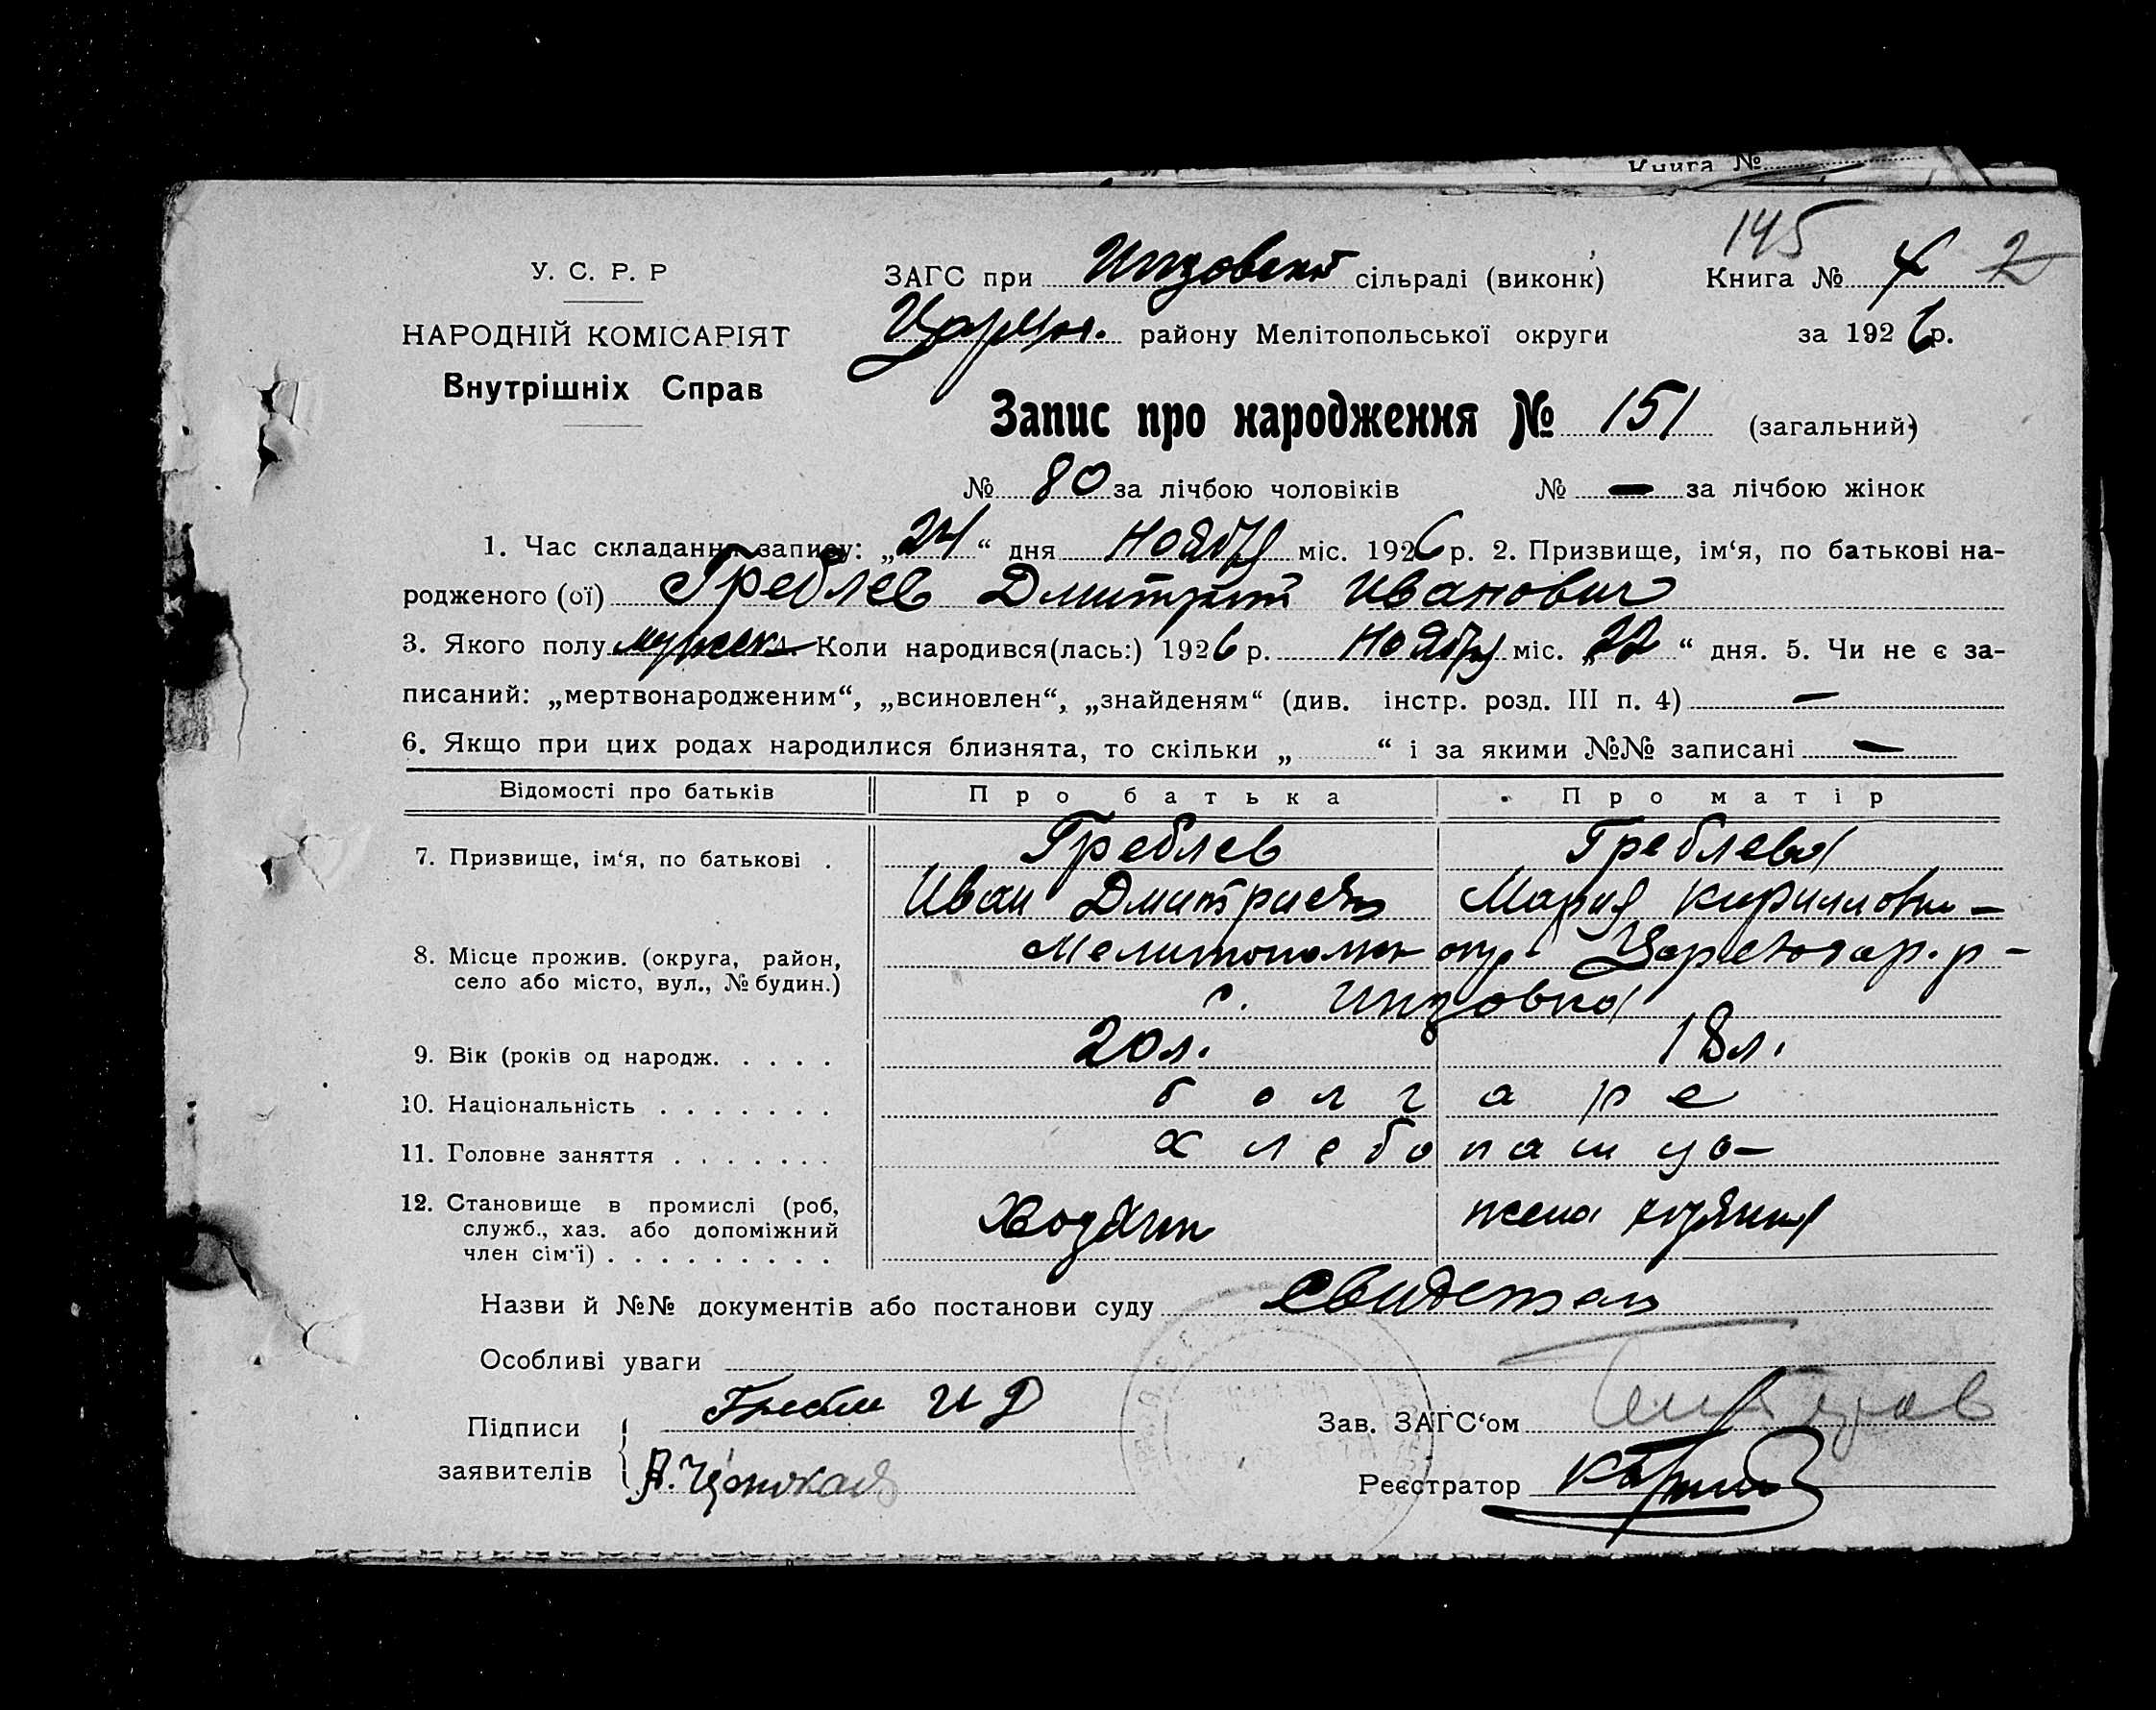 Книга №
145
У. С. Р. Р
ЗАГС при Инзовской сільраді (виконк)
Книга № 4 2
НАРОДНІЙ КОМІСАРІЯТ
району Мелітопольської округи
за 1926 р.
Внутрішніх Справ
Запис про народження № 151 (загальний)
№ 80 за лічбою чоловіків № — за лічбою жінок
1. Час складання запису: „24“ дня Ноября міс. 1926 р. 2. Призвище, ім‘я, по батькові на-
родженого (ої) Греблев Дмитрий Иванович
3. Якого полу мужск. Коли народився(лась:) 1926 р. Ноября міс. „22“ дня. 5. Чи не є за-
писаний: „мертвонародженим“, „всиновлен“, „знайденям“ (див. інстр. розд. III п. 4) —
6. Якщо при цих родах народилися близнята, то скільки „ “ і за якими №№ записані —
Відомості про батьків Про батька Про матір
7. Призвище, ім‘я, по батькові . Греблев Греблева
Иван Дмитриев Мария Кирилловн —
8. Місце прожив. (округа, район, Мелитопольск окр. Цареводар. р —
село або місто, вул., № будин.)
с. Инзовка
9. Вік (років од народж. . . . . 20 л. 18 л.
10. Національність . . . . . . . болгаре
11. Головне заняття . . . . . . . хлебопашцо —
12. Становище в промислі (роб,
служб., хаз. або допоміжний Хозяин жена хозяина
член сім‘ї) . . . . . . . . .
Назви й №№ документів або постанови суду Свидетели
Особливі уваги
Підписи И Д
Зав. ЗАГС‘ом
заявителів
Реєстратор